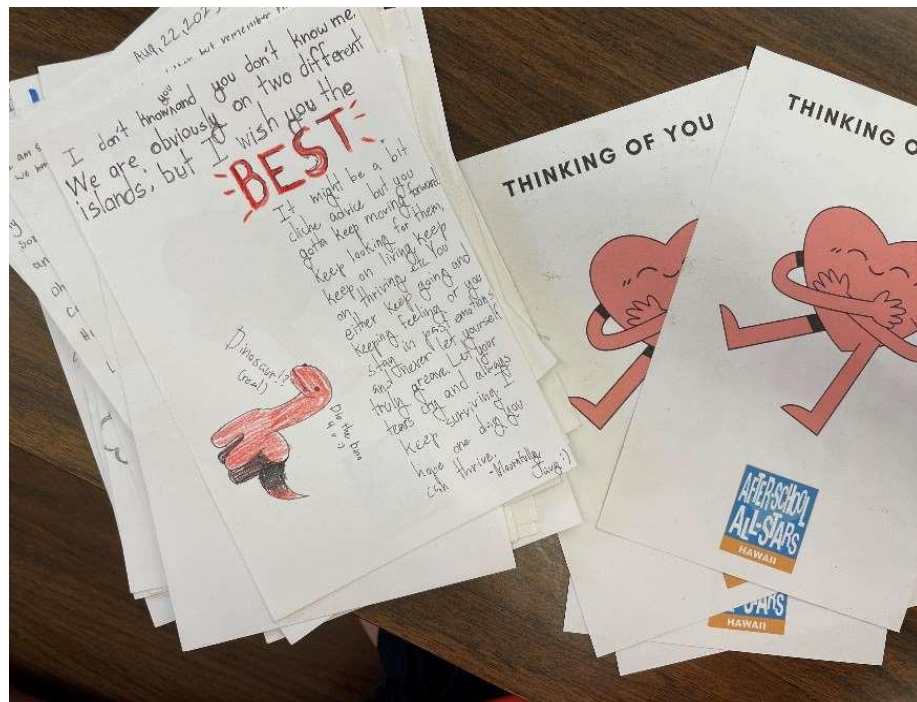 Aug, 22, 202
but remember
I don't know you and you don't know me.
We are obviously on two different
islands, but I wish you the
BEST
It might be a bit
cliche advice but you
gotta keep moving forward.
Keep looking for them,
keep on living, keep
on thriving etc. You
either keep going and
keeping feeling or you
stay in past emotions
and never let yourself
truly greave. Let your
tears dry and always
keep surviving. I
hope one day you
can thrive.
-Mournfully
:)
Dinosaur!?
(real)
Dio the
THINKING OF YOU
AFTER-SCHOOL
ALL-STARS
HAWAII
THINKING O
HAWAII